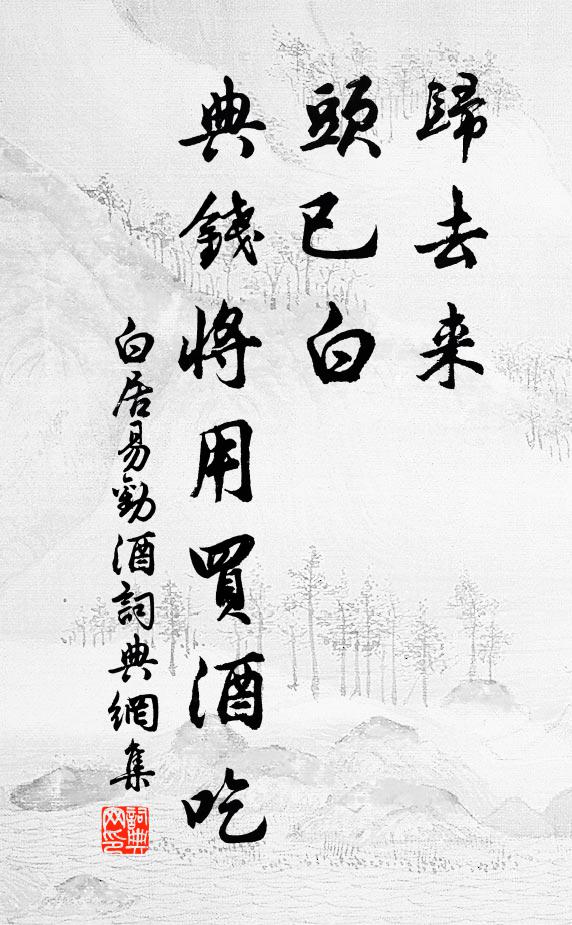 歸去来
頭已白
典錢將用買酒吃
白居易勸酒詞典網集
詞典
网印